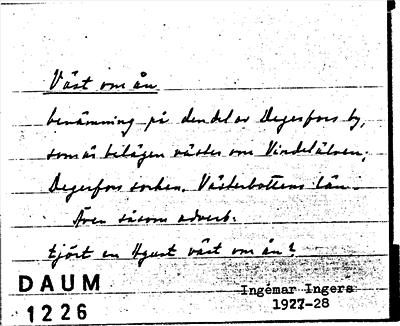 Väst om ån
benämning på den del av Degerfors by,
som är belägen väster om Vindelälven,
Degerfors socken. Västerbottens län.
Även såsom adverb.
en väst om ån?
DAUM
1226
Ingemar Ingers
1927-28